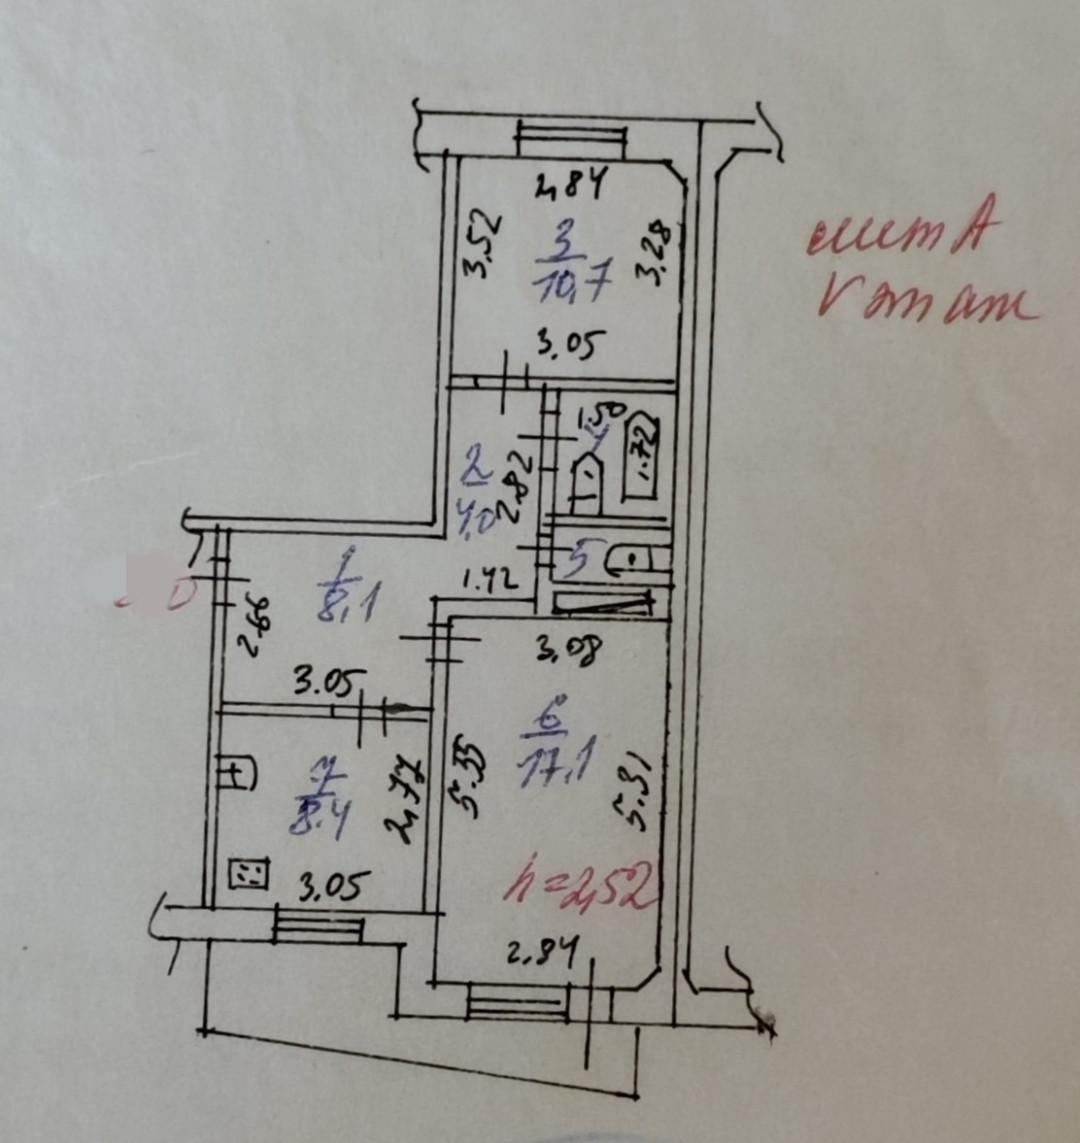 2,84
3.52
3
10,7
3.28
лит А
V этаж
3.05
1.50
4
1.72
2
4,0
2.82
5
1
8,1
1.42
2.66
3.05
3.08
6
17,1
7
8.4
2,77
5.35
5.31
3.05
h=2,52
2.84